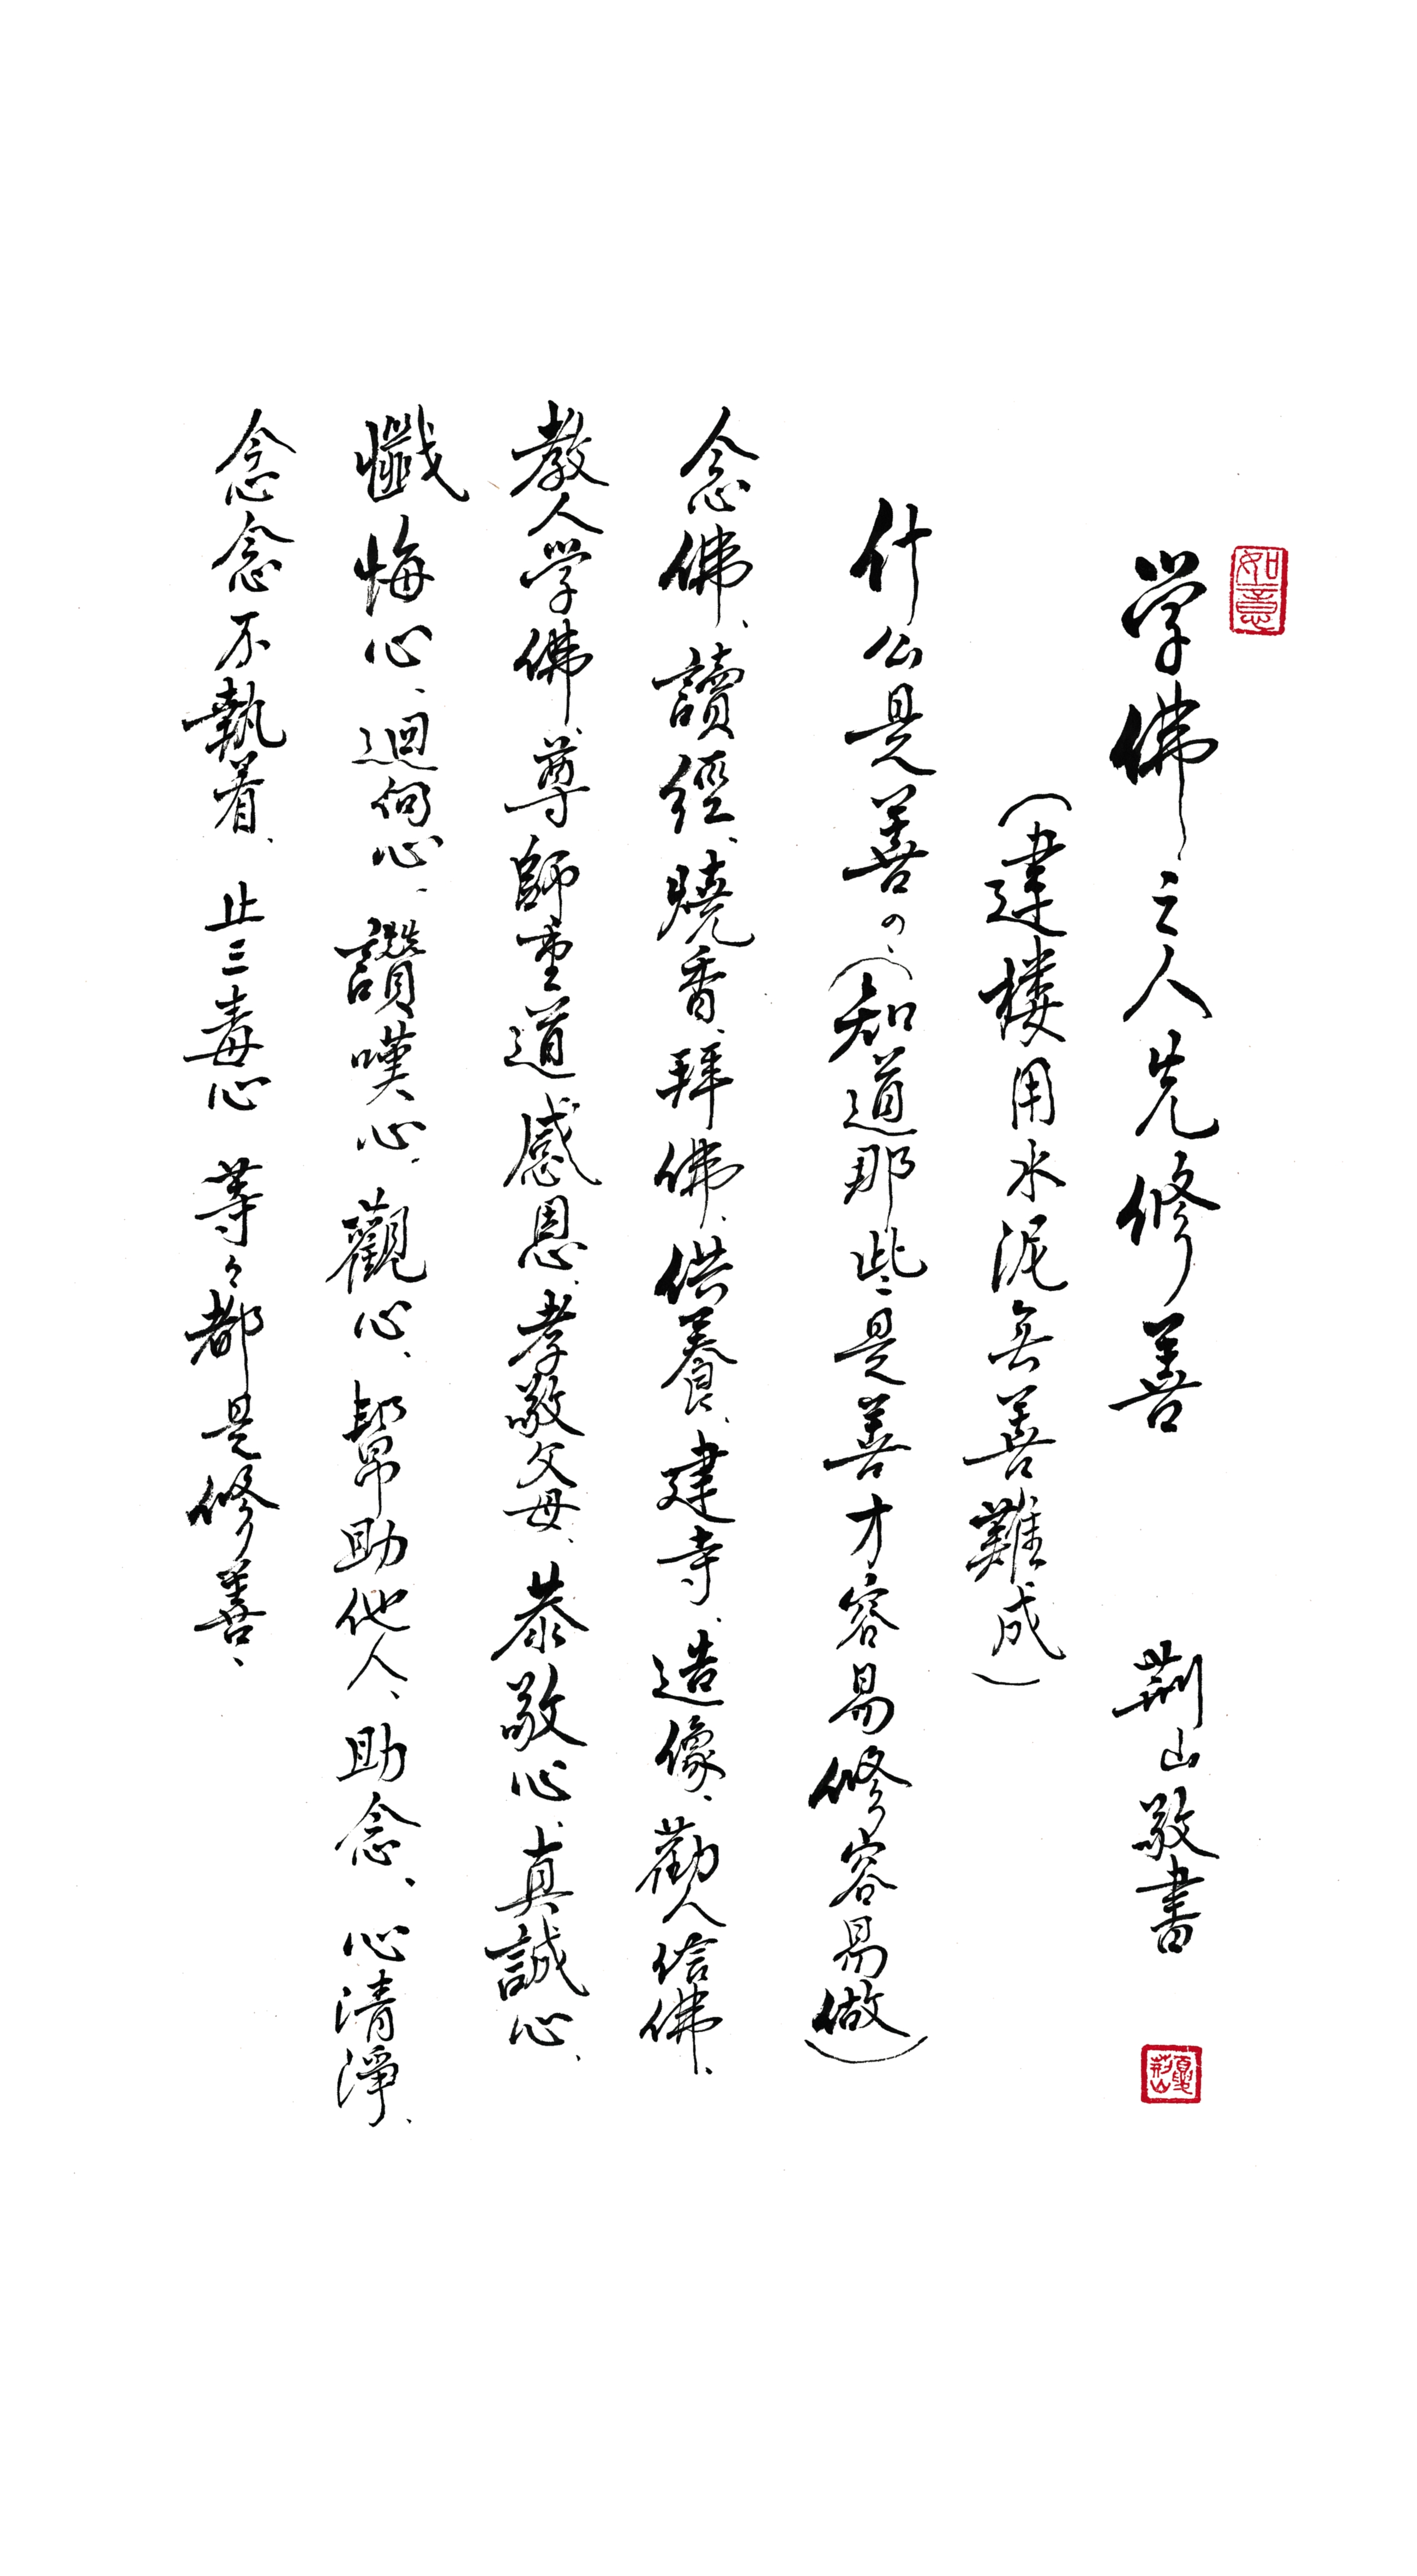 如意
学佛之人先修善
荆山敬書
(建楼用水泥無善難成)
什么是善?(知道那些是善才容易修容易做)
念佛、讀經、燒香、拜佛、供養、建寺、造像、勸人信佛、
教人学佛、尊師重道、感恩、孝敬父母、恭敬心、真誠心、
懺悔心、迴向心、讚嘆心、觀心、幫助他人、助念、心清淨、
念念不執着、止三毒心 等々都是修善、